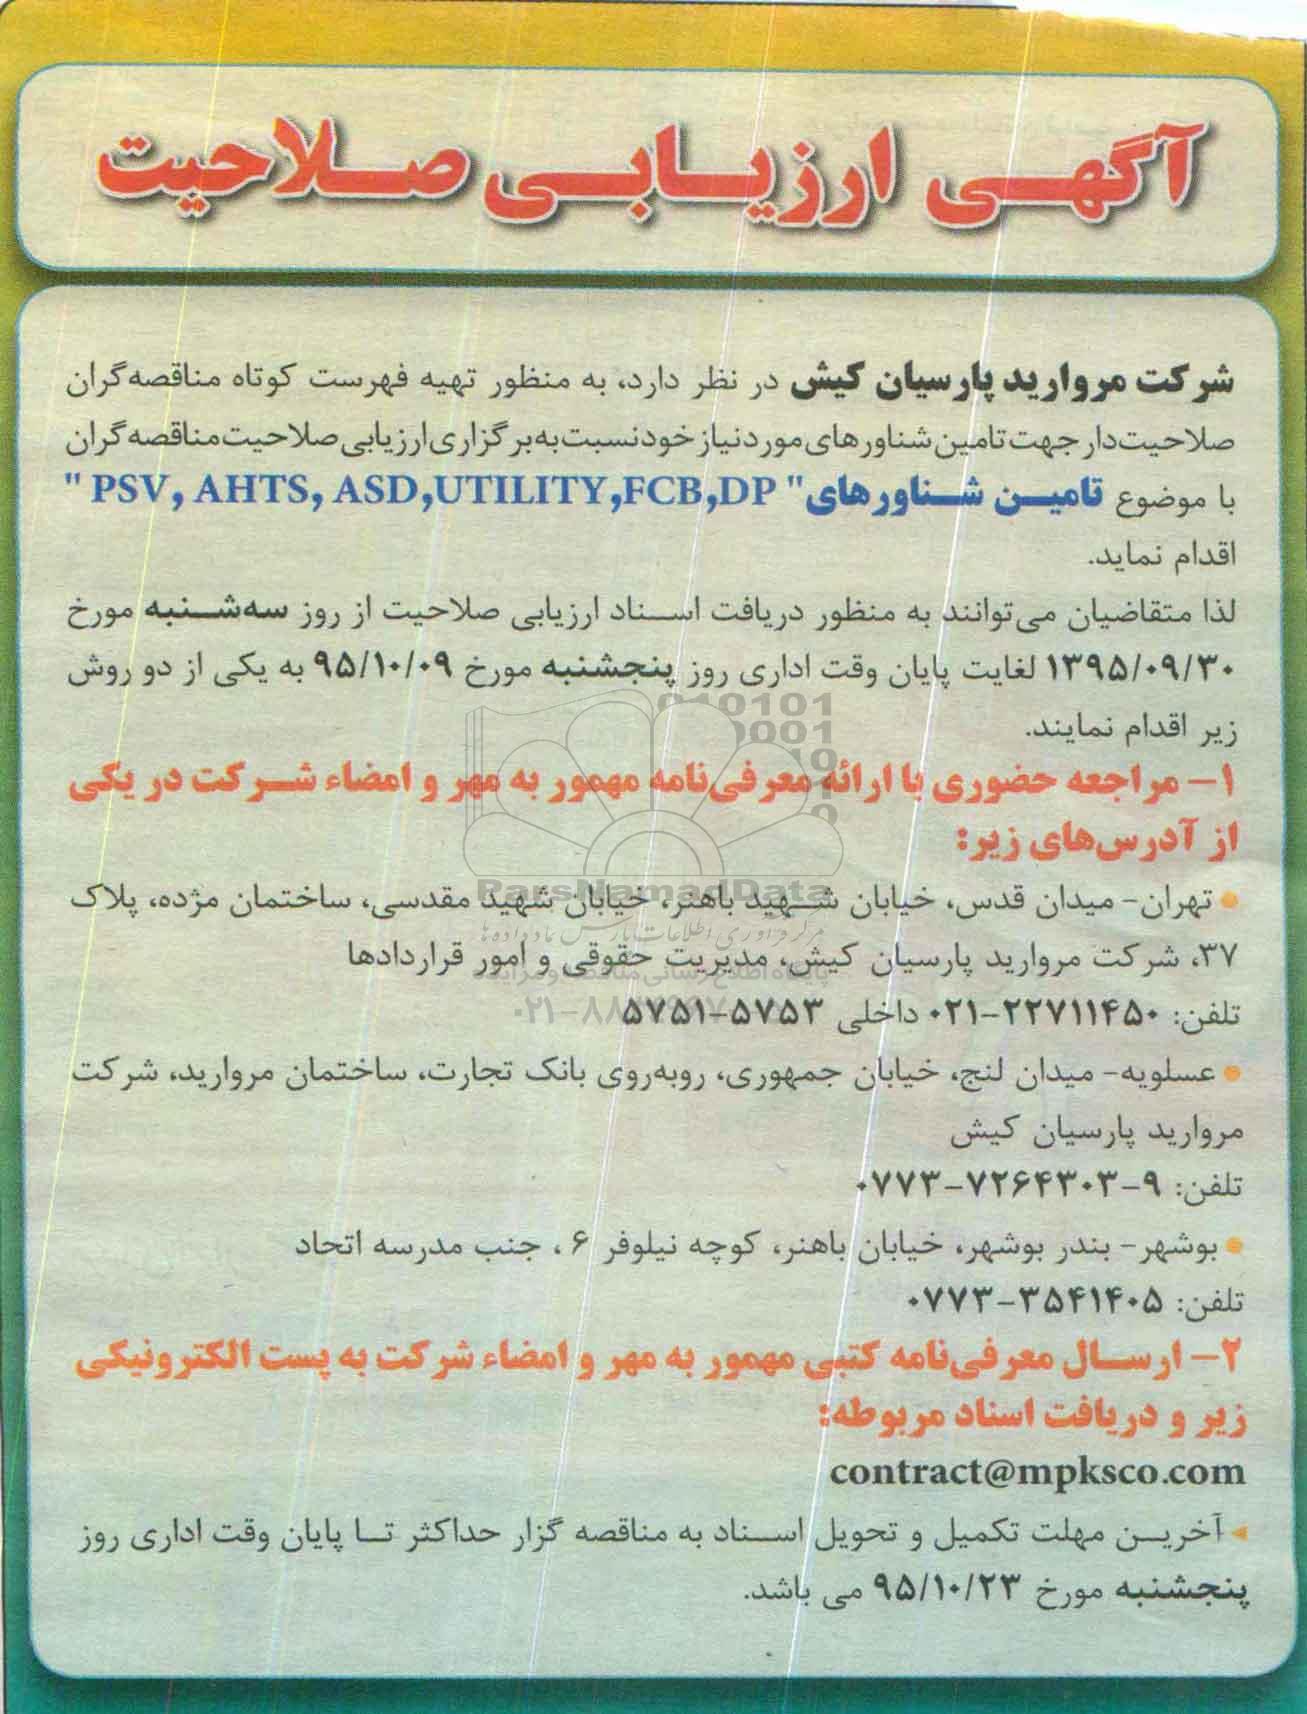 آگهی ارزیابی صلاحیت
شرکت مروارید پارسیان کیش در نظر دارد، به منظور تهیه فهرست کوتاه مناقصه‌گران
صلاحیت‌دار جهت تامین شناورهای مورد نیاز خود نسبت به برگزاری ارزیابی صلاحیت مناقصه‌گران
با موضوع تامین شناورهای " PSV, AHTS, ASD,UTILITY,FCB,DP "
اقدام نماید.
لذا متقاضیان می‌توانند به منظور دریافت اسناد ارزیابی صلاحیت از روز سه‌شنبه مورخ
۱۳۹۵/۰۹/۳۰ لغایت پایان وقت اداری روز پنجشنبه مورخ ۹۵/۱۰/۰۹ به یکی از دو روش
زیر اقدام نمایند.
۱- مراجعه حضوری با ارائه معرفی‌نامه مهمور به مهر و امضاء شرکت در یکی
از آدرس‌های زیر:
تهران- میدان قدس، خیابان شهید باهنر، خیابان شهید مقدسی، ساختمان مژده، پلاک
۳۷، شرکت مروارید پارسیان کیش، مدیریت حقوقی و امور قراردادها
تلفن: ۲۲۷۱۱۴۵۰-۰۲۱ داخلی ۵۷۵۳-۵۷۵۱
عسلویه- میدان لنج، خیابان جمهوری، روبه‌روی بانک تجارت، ساختمان مروارید، شرکت
مروارید پارسیان کیش
تلفن: ۹-۷۲۶۴۳۰۳-۰۷۷۳
بوشهر- بندر بوشهر، خیابان باهنر، کوچه نیلوفر ۶ ، جنب مدرسه اتحاد
تلفن: ۳۵۴۱۴۰۵-۰۷۷۳
۲- ارسال معرفی‌نامه کتبی مهمور به مهر و امضاء شرکت به پست الکترونیکی
زیر و دریافت اسناد مربوطه:
contract@mpksco.com
آخرین مهلت تکمیل و تحویل اسناد به مناقصه گزار حداکثر تا پایان وقت اداری روز
پنجشنبه مورخ ۹۵/۱۰/۲۳ می باشد.
ParsNamadData
مرکز فرآوری اطلاعات پارس نماد داده ها